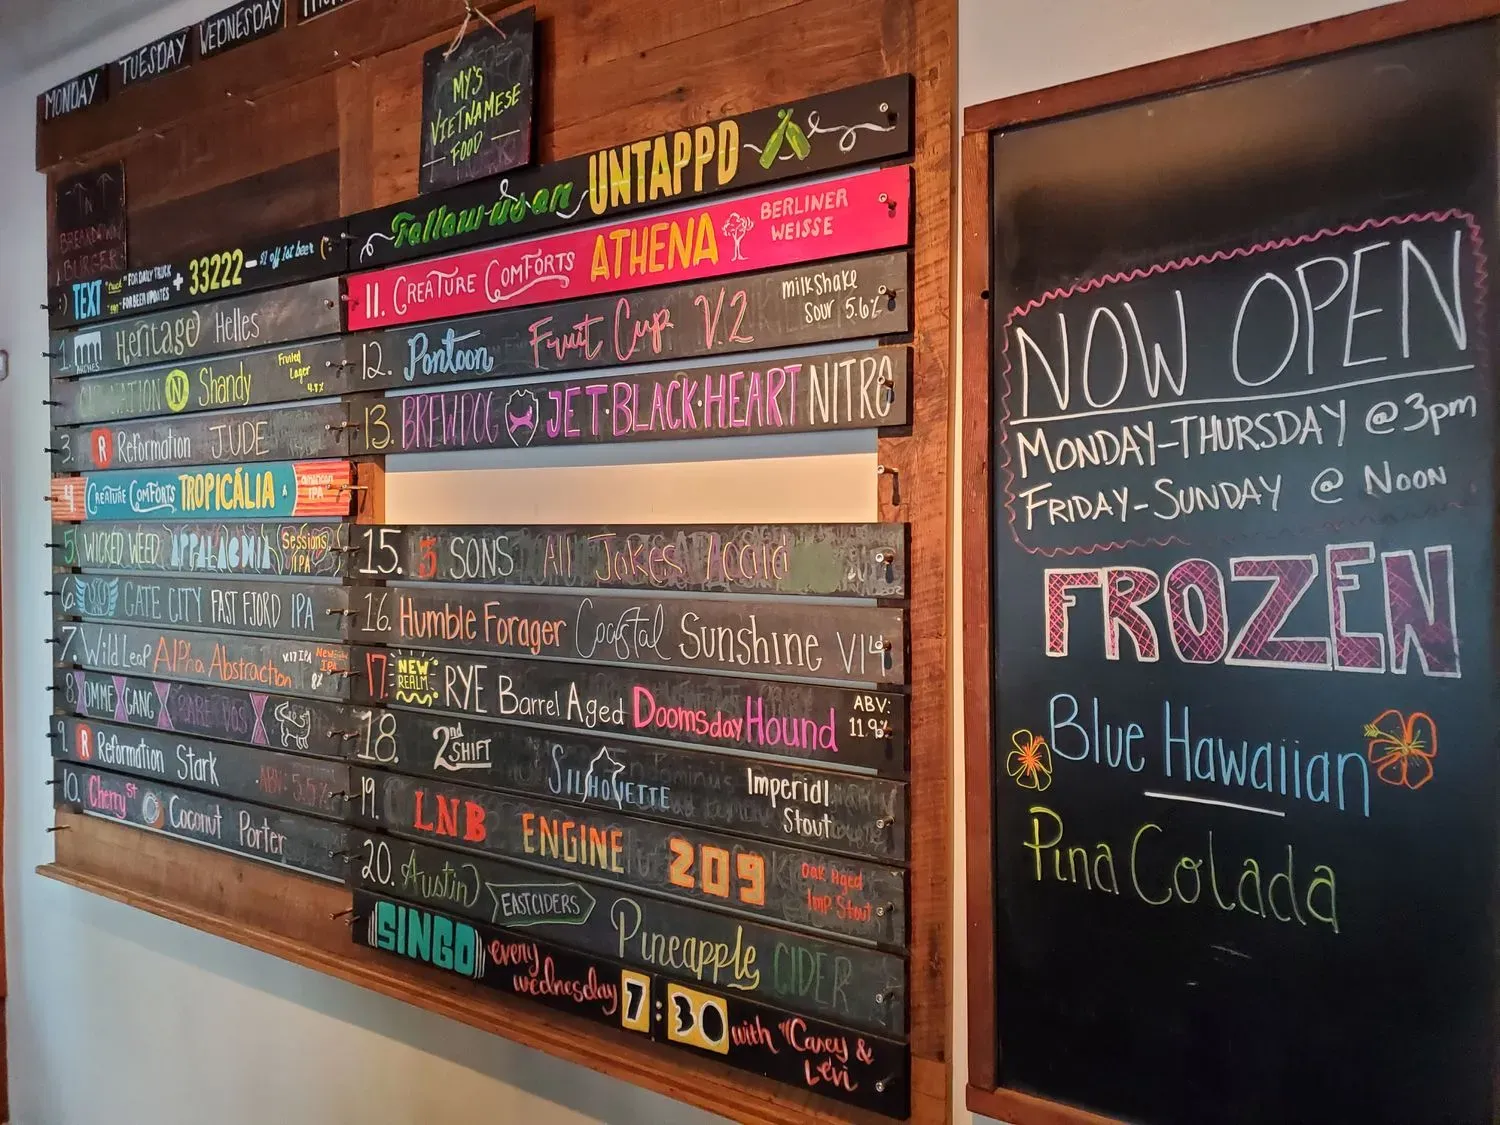 MONDAY
TUESDAY
WEDNESDAY
MY'S
VIETNAMESE
FOOD
BREAKDOWN
BURGER
:) TEXT "truck" FOR DAILY TRUCK + 33222 - $1 off 1st beer (:
FOR BEER UPDATES
1. ARCHES Heritage Helles
NATION N Shandy Fruited Lager 4.8%
3. R Reformation JUDE
4. CREATURE COMFORTS TROPICÁLIA american IPA
5. WICKED WEED APPALACHIA Sessions IPA
6. GATE CITY FAST FJORD IPA
7. Wild Leap Alpha Abstraction V.17 IPA 8%
8. OMMEGANG RARE VOS
9. R Reformation Stark ABV: 5.5%
10. Cherry St Coconut Porter
Follow us on UNTAPPD
11. CREATURE COMFORTS ATHENA BERLINER WEISSE
12. Pontoon Fruit Cup V.2 milkshake Sour 5.6%
13. BREWDOG JET·BLACK·HEART NITRO
15. 3 SONS All Jakes
16. Humble Forager Coastal Sunshine V14
17. NEW REALM RYE Barrel Aged Doomsday Hound ABV: 11.9%
18. 2nd SHIFT SILHOUETTE Imperial Stout
19. LNB ENGINE 209 Oak Aged Imp Stout
20. Austin EASTCIDERS Pineapple CIDER
SINGO every wednesday 7:30 with "Casey & Levi
NOW OPEN
MONDAY-THURSDAY @ 3pm
FRIDAY-SUNDAY @ NOON
FROZEN
Blue Hawaiian
Pina Colada